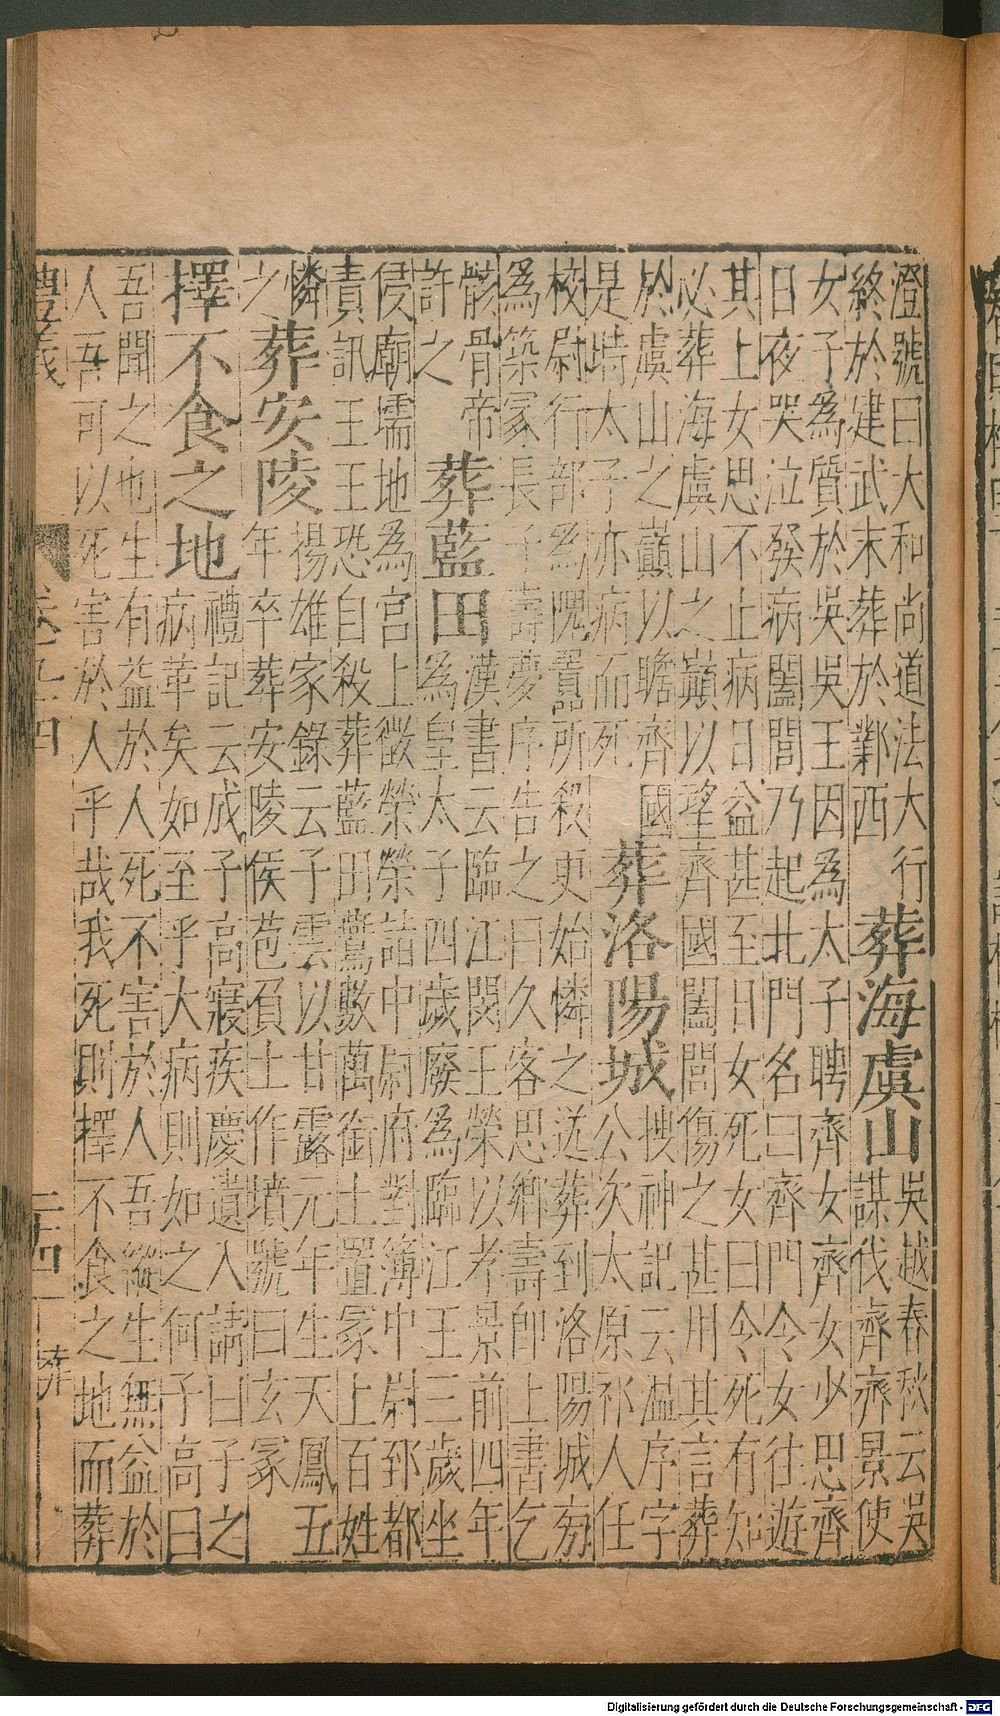 澄號曰大和尚道法大行
終於建武末葬於鄴西
葬海虞山
吳越春秋云吳
謀伐齊齊景使
女子為質於吳吳王因為太子聘齊女齊女少思齊
日夜哭泣發病闔閭乃起北門名曰齊門令女往遊
其上女思不止病日益甚至日女死女曰令死有知
必葬海虞山之巔以望齊國闔閭傷之甚用其言葬
於虞山之巔以瞻齊國
是時太子亦病而死
葬洛陽城
搜神記云温序字
公次太原祁人任
校尉行部為隗囂所殺更始憐之送葬到洛陽城旁
為築冢長子壽夢序告之曰久客思鄉壽即上書乞
骸骨帝
許之
葬藍田
漢書云臨江閔王榮以孝景前四年
為皇太子四歲廢為臨江王三歲坐
侵廟壖地為宮上徵榮榮詣中尉府對簿中尉郅都
責訊王王恐自殺葬藍田驚數萬銜土置冢上百姓
憐
之
葬安陵
揚雄家錄云子雲以甘露元年生天鳳五
年卒葬安陵侯苞負土作墳號曰玄冢
擇不食之地
禮記云成子高寢疾慶遺入請曰子之
病革矣如至乎大病則如之何子高曰
吾聞之也生有益於人死不害於人吾縱生無益於
人吾可以死害於人乎哉我死則擇不食之地而葬
禮義 卷 葬
Digitalisierung gefördert durch die Deutsche Forschungsgemeinschaft - DFG